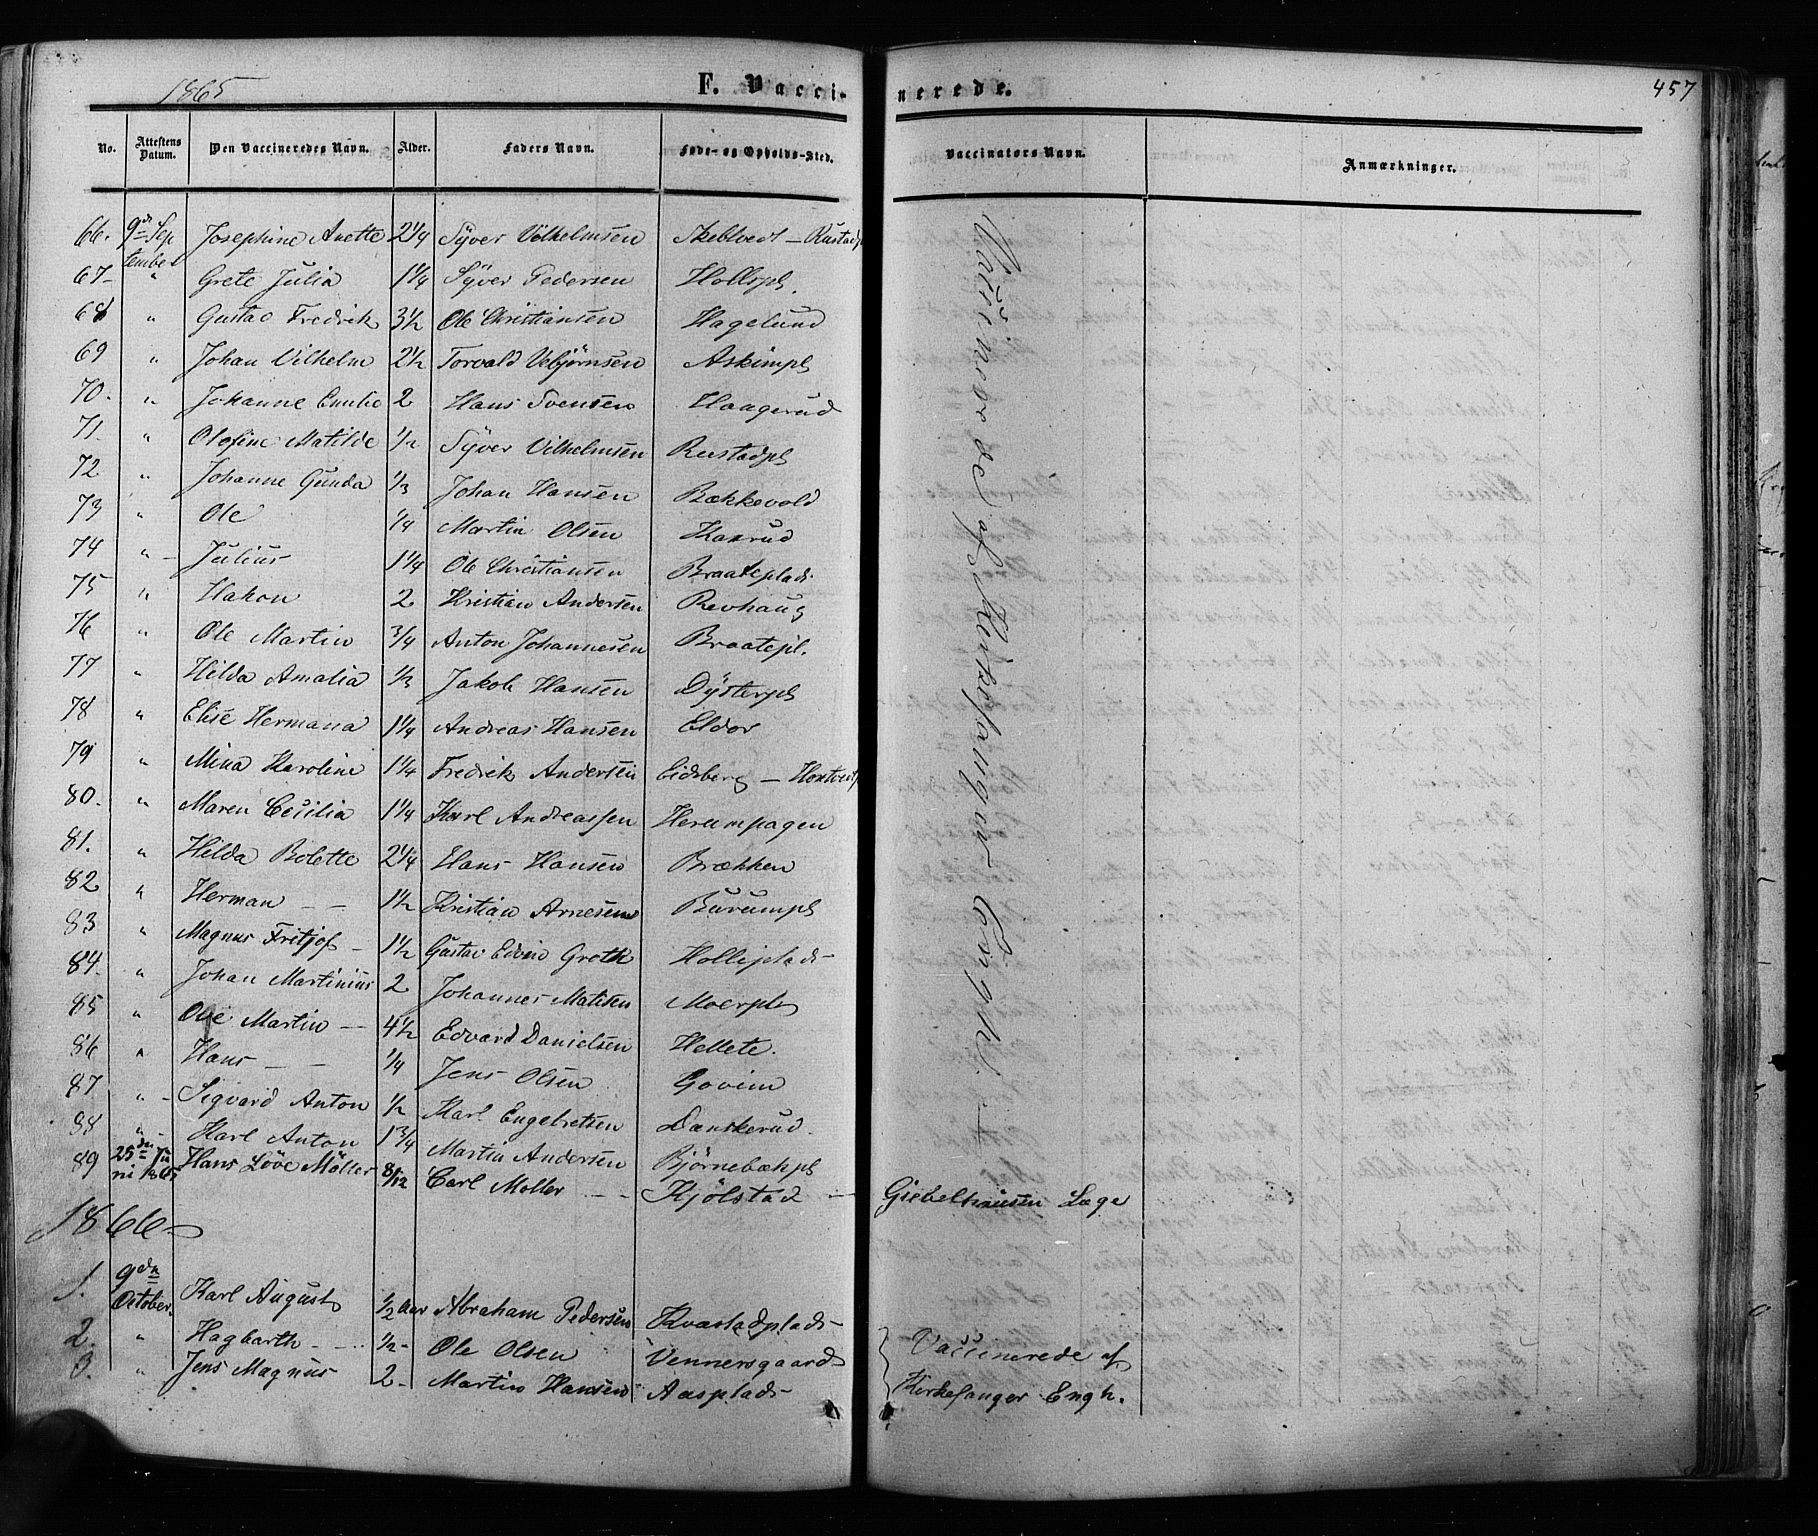 1865
F. Vaccinerede.
457
No. Attestens Datum. Den Vaccineredes Navn. Alder. Faders Navn. Føde- og Opholds-Sted. Vaccinators Navn. Anmærkninger.
66. 9de Sep tember Josephine Anette 2 1/4 Syver Vilhelmsen Skebtvedt - Rustadpl
67- " Grete Julia 1 1/4 Syver Pedersen Hollspl.
68 " Gustav Fredrik 3 1/2 Ole Christiansen Hagelund
69 " Johan Vilhelm 2 1/2 Torvald Vebjørnsen Askimpl
70. " Johanne Emilie 2 Hans Svensen Haagerud
71. " Olefine Matilde 1/2 Syver Vilhelmsen Rustadpl
72 " Johanne Gunda 1/3 Johan Hansen Bækkevold
73 " Ole 1/4 Martin Olsen Kaxrud
74 " - Julius 1 1/4 Ole Christiansen Braateplads
75 " Hakon 2 Kristian Andersen Revhaug
76 " Ole Martin 3/4 Anton Johannesen Braatepl.
77 " Hilda Amalia 1/3 Jakob Hansen Dysterpl
78 " Elise Hermana 1 1/4 Andreas Hansen Eldor
79 " Mina Karoline 1 1/4 Fredrik Andersen Eidsberg - Hontvedt
80. " Maren Cecilia 1 1/4 Karl Andreassen Herumpagen
81. " Hilda Bolette 2 1/4 Hans Hansen Brækken
82 " Herman - - 1 1/2 Kristian Arnesen Burumpl
83 " Magnus Fritjof - 1 1/2 Gustav Edvin Groth Holliplads-
84. " Johan Martinius 2 Johannes Matisen Moerpl
85 " Ole Martin - 4 1/2 Edvard Danielsen Hellete.
86 " Hans - - 1/4 Jens Olsen Govim
87 " - Sigvard Anton 1/2 Karl Engebretsen Danskerud.
88 " - Karl Anton 1 3/4 Martin Andersen Bjørnebækpl
89 25de Ju ni 1865 Hans Løve Møller 8/12 Carl Møller - - Kjølstad - Giebelhausen Læge
Vaccinerede af Kirkesanger Engh. -
1866-
1. 9de October. Karl August 1/2 aar Abraham Pedersen Kvastadplads-
2. " Hagbarth - . . 1/2- Ole Olsen Vennersgaard
3. " Jens Magnus 2- Martin Hansen Aasplads-
Vaccinerede af
Kirkesanger Engh.